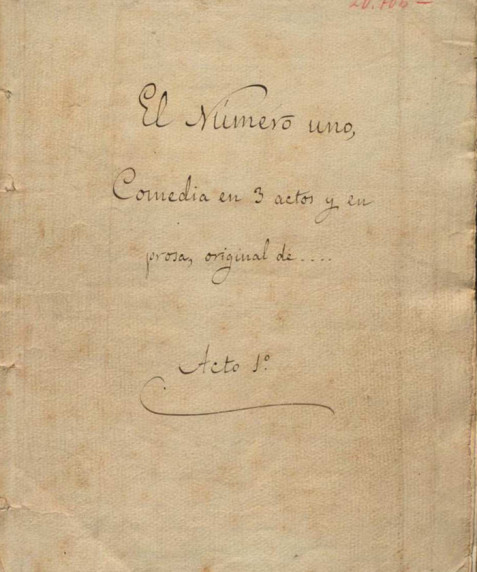 El Número uno,
Comedia en 3 actos y en
prosa, original de....
Acto 1º